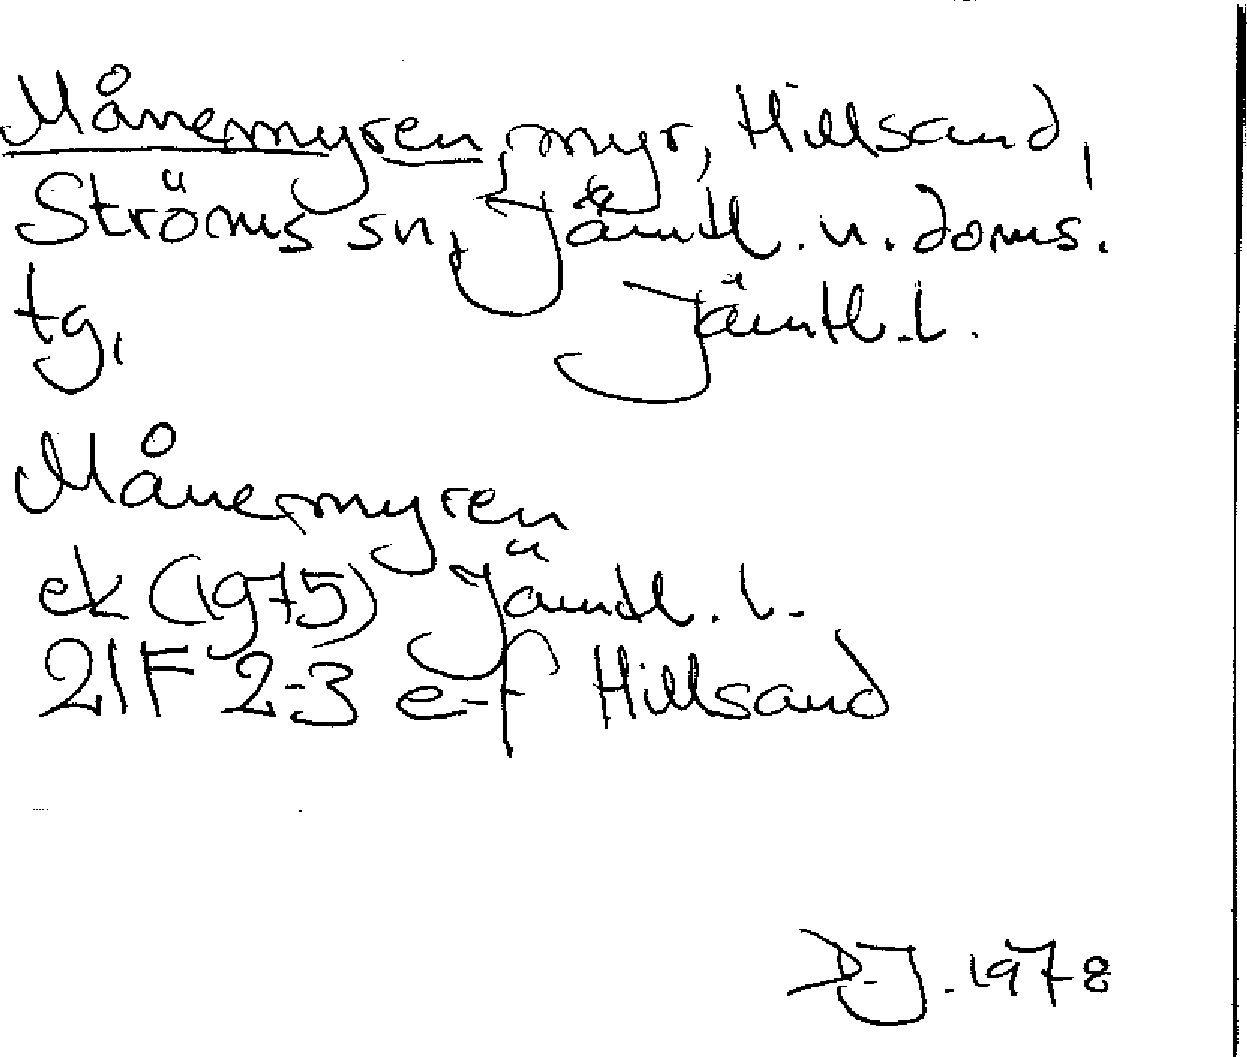 Månemyren, myr, Hillsand,
Ströms sn, Jämtl. n. doms.
tg, Jämtl. l.
Månemyren
ek (1975) Jämtl. l.
21F 2-3 e-f Hillsand
D-J. 1978